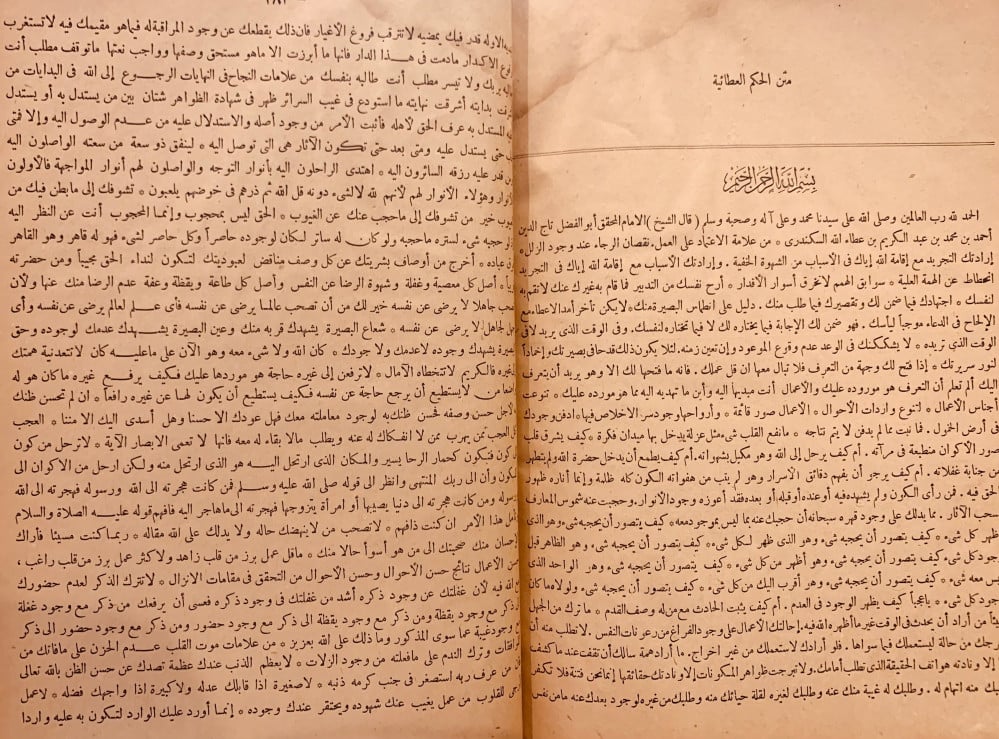 متن الحكم العطائية
بسم الله الرحمن الرحيم
الحمد لله رب العالمين وصلى الله على سيدنا محمد وعلى آله وصحبة وسلم (قال الشيخ) الامام المحقق أبو الفضل تاج الدين
أحمد بن محمد بن عبد الكريم بن عطاء الله السكندرى * من علامة الاعتماد على العمل. نقصان الرجاء عند وجود الزلل *
إرادتك التجريد مع إقامة الله إياك فى الأسباب من الشهوة الخفية . وإرادتك الأسباب مع إقامة الله إياك فى التجريد
انحطاط عن الهمة العلية * سوابق الهمم لا تخرق أسوار الأقدار * أرح نفسك من التدبير فما قام به غيرك عنك لا تقم به
لنفسك * اجتهادك فيما ضمن لك وتقصيرك فيما طلب منك . دليل على انطماس البصيرة منك * لا يكن تأخر أمد الاعطاء مع
الإلحاح فى الدعاء موجباً ليأسك . فهو ضمن لك الإجابة فيما يختاره لك لا فيما تختاره لنفسك . وفى الوقت الذى يريد لا فى
الوقت الذى تريده * لا يشككنك فى الوعد عدم وقوع الموعود وإن تعين زمنه . لئلا يكون ذلك قدحا فى بصيرتك وإخماداً
لنور سريرتك * إذا فتح لك وجهة من التعرف فلا تبال معها ان قل عملك . فانه ما فتحها لك الا وهو يريد أن يتعرف
اليك ألم تعلم أن التعرف هو مورده عليك والأعمال أنت مهديها اليه وأين ما تهديه اليه مما هو مورده عليك * تنوعت
أجناس الأعمال * لتنوع واردات الأحوال * الأعمال صور قائمة * وأرواحها وجود سر الاخلاص فيها * ادفن وجودك
فى أرض الخمول . فما نبت مما لم يدفن لا يتم نتاجه * مانفع القلب شىء مثل عزلة يدخل بها ميدان فكرة * كيف يشرق قلب
صور الأكوان منطبعة فى مرآته . أم كيف يرحل إلى الله وهو مكبل بشهواته . أم كيف يطمع أن يدخل حضرة الله ولم يتطهر
من جنابة غفلاته . أم كيف يرجو أن يفهم دقائق الأسرار وهو لم يتب من هفواته * الكون كله ظلمة وإنما أناره ظهور
الحق فيه . فمن رأى الكون ولم يشهده فيه أو عنده أو قبله أو بعده فقد أعوزه وجود الأنوار . وحجبت عنه شموس المعارف
بسحب الآثار . مما يدلك على وجود قهره سبحانه أن حجبك عنه بما ليس بموجود معه * كيف يتصور أن يحجبه شىء وهو الذى
أظهر كل شىء * كيف يتصور أن يحجبه شىء وهو الذى ظهر لكل شىء * كيف يتصور أن يحجبه شىء وهو الظاهر قبل
وجود كل شىء * كيف يتصور أن يحجبه شىء وهو أظهر من كل شىء * كيف يتصور أن يحجبه شىء وهو الواحد الذى
ليس معه شىء * كيف يتصور أن يحجبه شىء وهو أقرب اليك من كل شىء * كيف يتصور أن يحجبه شىء ولولاه ما كان
وجود كل شىء * ياعجباً كيف يظهر الوجود فى العدم . أم كيف يثبت الحادث مع من له وصف القدم * ما ترك من الجهل
شيئاً من أراد أن يحدث فى الوقت غير ما أظهره الله فيه * إحالتك الأعمال على وجود الفراغ من رعونات النفس . لا تطلب منه أن
يخرجك من حالة ليستعملك فيما سواها . فلو أرادك لاستعملك من غير اخراج . ما أرادهمة سالك أن تقف عند ما كشف
إلا ونادته هواتف الحقيقة الذى تطلب أمامك . ولا تبرجت ظواهر المكونات إلا ونادتك حقائقها إنما نحن فتنة فلا تكفر
منه اتهام له . وطلبك له غيبة منك عنه وطلبك لغيره لقلة حيائك منه وطلبك من غيره لوجود بعدك عنه ما من نفس
٢٨٢
تبديه الا وله قدر فيك يمضيه لا تترقب فروغ الأغيار فان ذلك يقطعك عن وجود المراقبة له فيما هو مقيمك فيه لا تستغرب
وقوع الأكدار مادمت فى هذا الدار فانها ما أبرزت الا ماهو مستحق وصفها وواجب نعتها ما توقف مطلب أنت
طالبه بربك ولا تيسر مطلب أنت طالبه بنفسك من علامات النجاح فى النهايات الرجوع إلى الله فى البدايات من
أشرقت بدايته أشرقت نهايته ما استودع فى غيب السرائر ظهر فى شهادة الظواهر شتان بين من يستدل به أو يستدل
عليه المستدل به عرف الحق لأهله فأثبت الأمر من وجود أصله والاستدلال عليه من عدم الوصول اليه وإلا فمتى
غاب حتى يستدل عليه ومتى بعد حتى تكون الآثار هى التى توصل اليه * لينفق ذو سعة من سعته الواصلون اليه
ومن قدر عليه رزقه السائرون اليه * اهتدى الراحلون اليه بأنوار التوجه والواصلون لهم أنوار المواجهة فالأولون
للأنوار وهؤلاء الأنوار لهم لأنهم لله لالشىء دونه قل الله ثم ذرهم فى خوضهم يلعبون * تشوفك إلى مابطن فيك من
العيوب خير من تشوفك إلى ماحجب عنك من الغيوب * الحق ليس بمحجوب وإنما المحجوب أنت عن النظر اليه
إذ لو حجبه شىء لستره ماحجبه ولو كان له ساتر لكان لوجوده حاصراً وكل حاصر لشىء فهو له قاهر وهو القاهر
فوق عباده * أخرج من أوصاف بشريتك عن كل وصف يناقض لعبوديتك لتكون لنداء الحق مجيباً ومن حضرته
قريباً * أصل كل معصية وغفلة وشهوة الرضا عن النفس وأصل كل طاعة ويقظة وعفة عدم الرضا منك عنها ولأن
تصحب جاهلا لا يرضى عن نفسه خير لك من أن تصحب عالما يرضى عن نفسه فأى علم لعالم يرضى عن نفسه وأى
جهل لجاهل لا يرضى عن نفسه * شعاع البصيرة يشهدك قربه منك وعين البصيرة يشهدك عدمك لوجوده وحق
البصيرة يشهدك وجوده لاعدمك ولا جودك * كان الله ولا شىء معه وهو الآن على ماعليه كان لا تتعد نية همتك
لغيره فالكريم لا تتخطاه الآمال * لا ترفعن إلى غيره حاجة هو موردها عليك فكيف يرفع غيره ما كان هو له
واضعا من لا يستطيع أن يرجع حاجة عن نفسه فكيف يستطيع أن يكون لها عن غيره رافعاً * ان لم تحسن ظنك
به لأجل حسن وصفه فحسن ظنك به لوجود معاملته معك فهل عودك الا حسنا وهل أسدى اليك الا مننا * العجب
كل العجب ممن يهرب ممن لا انفكاك له عنه ويطلب مالا بقاء له معه فانها لا تعمى الابصار الآية * لا ترحل من كون
إلى كون فتكون كحمار الرحا يسير والمكان الذى ارتحل اليه هو الذى ارتحل منه ولكن ارحل من الاكوان الى
المكون وأن الى ربك المنتهى وانظر الى قوله صلى الله عليه وسلم فمن كانت هجرته الى الله ورسوله فهجرته الى الله
ورسوله ومن كانت هجرته الى دنيا يصيبها أو امرأة يتزوجها فهجرته الى ماهاجر اليه فافهم قوله عليه الصلاة والسلام
وتأمل هذا الأمر ان كنت ذافهم * لا تصحب من لا ينهضك حاله ولا يدلك على الله مقاله * ربما كنت مسيئا فأراك
الاحسان منك صحبتك الى من هو أسوأ حالا منك * ماقل عمل برز من قلب زاهد ولا كثر عمل برز من قلب راغب ،
حسن الأعمال نتائج حسن الأحوال وحسن الأحوال من التحقق فى مقامات الانزال * لا تترك الذكر لعدم حضورك
مع الله فيه لأن غفلتك عن وجود ذكره أشد من غفلتك فى وجود ذكره فعسى أن يرفعك من ذكر مع وجود غفلة
إلى ذكر مع وجود يقظة ومن ذكر مع وجود يقظة الى ذكر مع وجود حضور ومن ذكر مع وجود حضور الى ذكر
مع وجود غيبة عما سوى المذكور وما ذلك على الله بعزيز * من علامات موت القلب عدم الحزن على مافاتك من
الموافقات وترك الندم على مافعلته من وجود الزلات * لا يعظم الذنب عندك عظمة تصدك عن حسن الظن بالله تعالى
فان من عرف ربه استصغر فى جنب كرمه ذنبه * لا صغيرة اذا قابلك عدله ولا كبيرة اذا واجهك فضله * لا عمل
أرجى للقلوب من عمل يغيب عنك شهوده ويحتقر عندك وجوده * إنما أورد عليك الوارد لتكون به عليه واردا